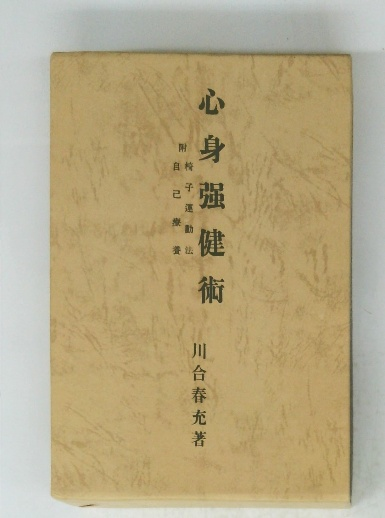 心身强健術
附 椅子運動法
自己療養
川合春充著